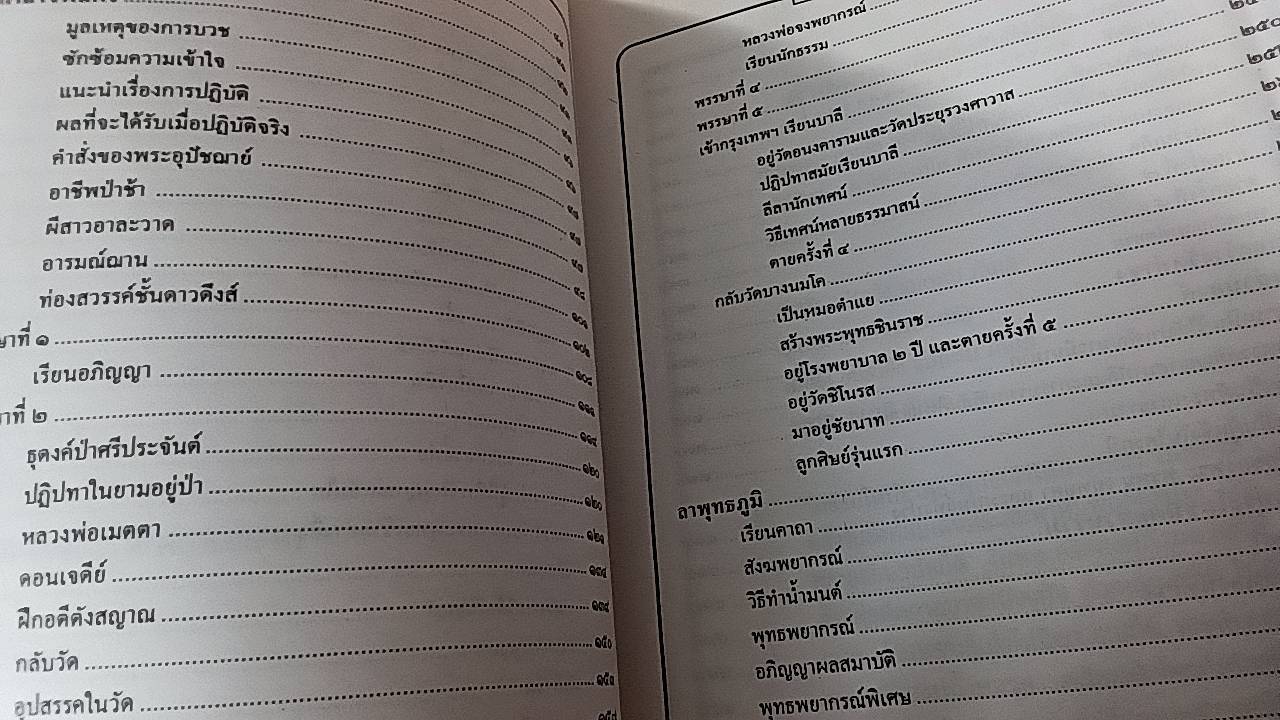 มูลเหตุของการบวช
ซักซ้อมความเข้าใจ
แนะนำเรื่องการปฏิบัติ
ผลที่จะได้รับเมื่อปฏิบัติจริง
คำสั่งของพระอุปัชฌาย์
อาชีพป่าช้า
ผีสาวอาละวาด
อารมณ์ฌาน
ท่องสวรรค์ชั้นดาวดึงส์
ษาที่ ๑
เรียนอภิญญา
าที่ ๒
ธุดงค์ป่าศรีประจันต์
ปฏิปทาในยามอยู่ป่า ๑๒๐
หลวงพ่อเมตตา
ดอนเจดีย์
ฝึกอตีตังสญาณ
กลับวัด ๑๕๐
อุปสรรคในวัด
หลวงพ่อจงพยากรณ์
เรียนนักธรรม
พรรษาที่ ๔
พรรษาที่ ๕
เข้ากรุงเทพฯ เรียนบาลี
อยู่วัดอนงคารามและวัดประยุรวงศาวาส
ปฏิปทาสมัยเรียนบาลี
ลีลานักเทศน์
วิธีเทศน์หลายธรรมาสน์
ตายครั้งที่ ๔
กลับวัดบางนมโค
เป็นหมอตำแย
สร้างพระพุทธชินราช
อยู่โรงพยาบาล ๒ ปี และตายครั้งที่ ๕
อยู่วัดชิโนรส
มาอยู่ชัยนาท
ลูกศิษย์รุ่นแรก
ลาพุทธภูมิ
เรียนคาถา
สังฆพยากรณ์
วิธีทำน้ำมนต์
พุทธพยากรณ์
อภิญญาผลสมาบัติ
พุทธพยากรณ์พิเศษ